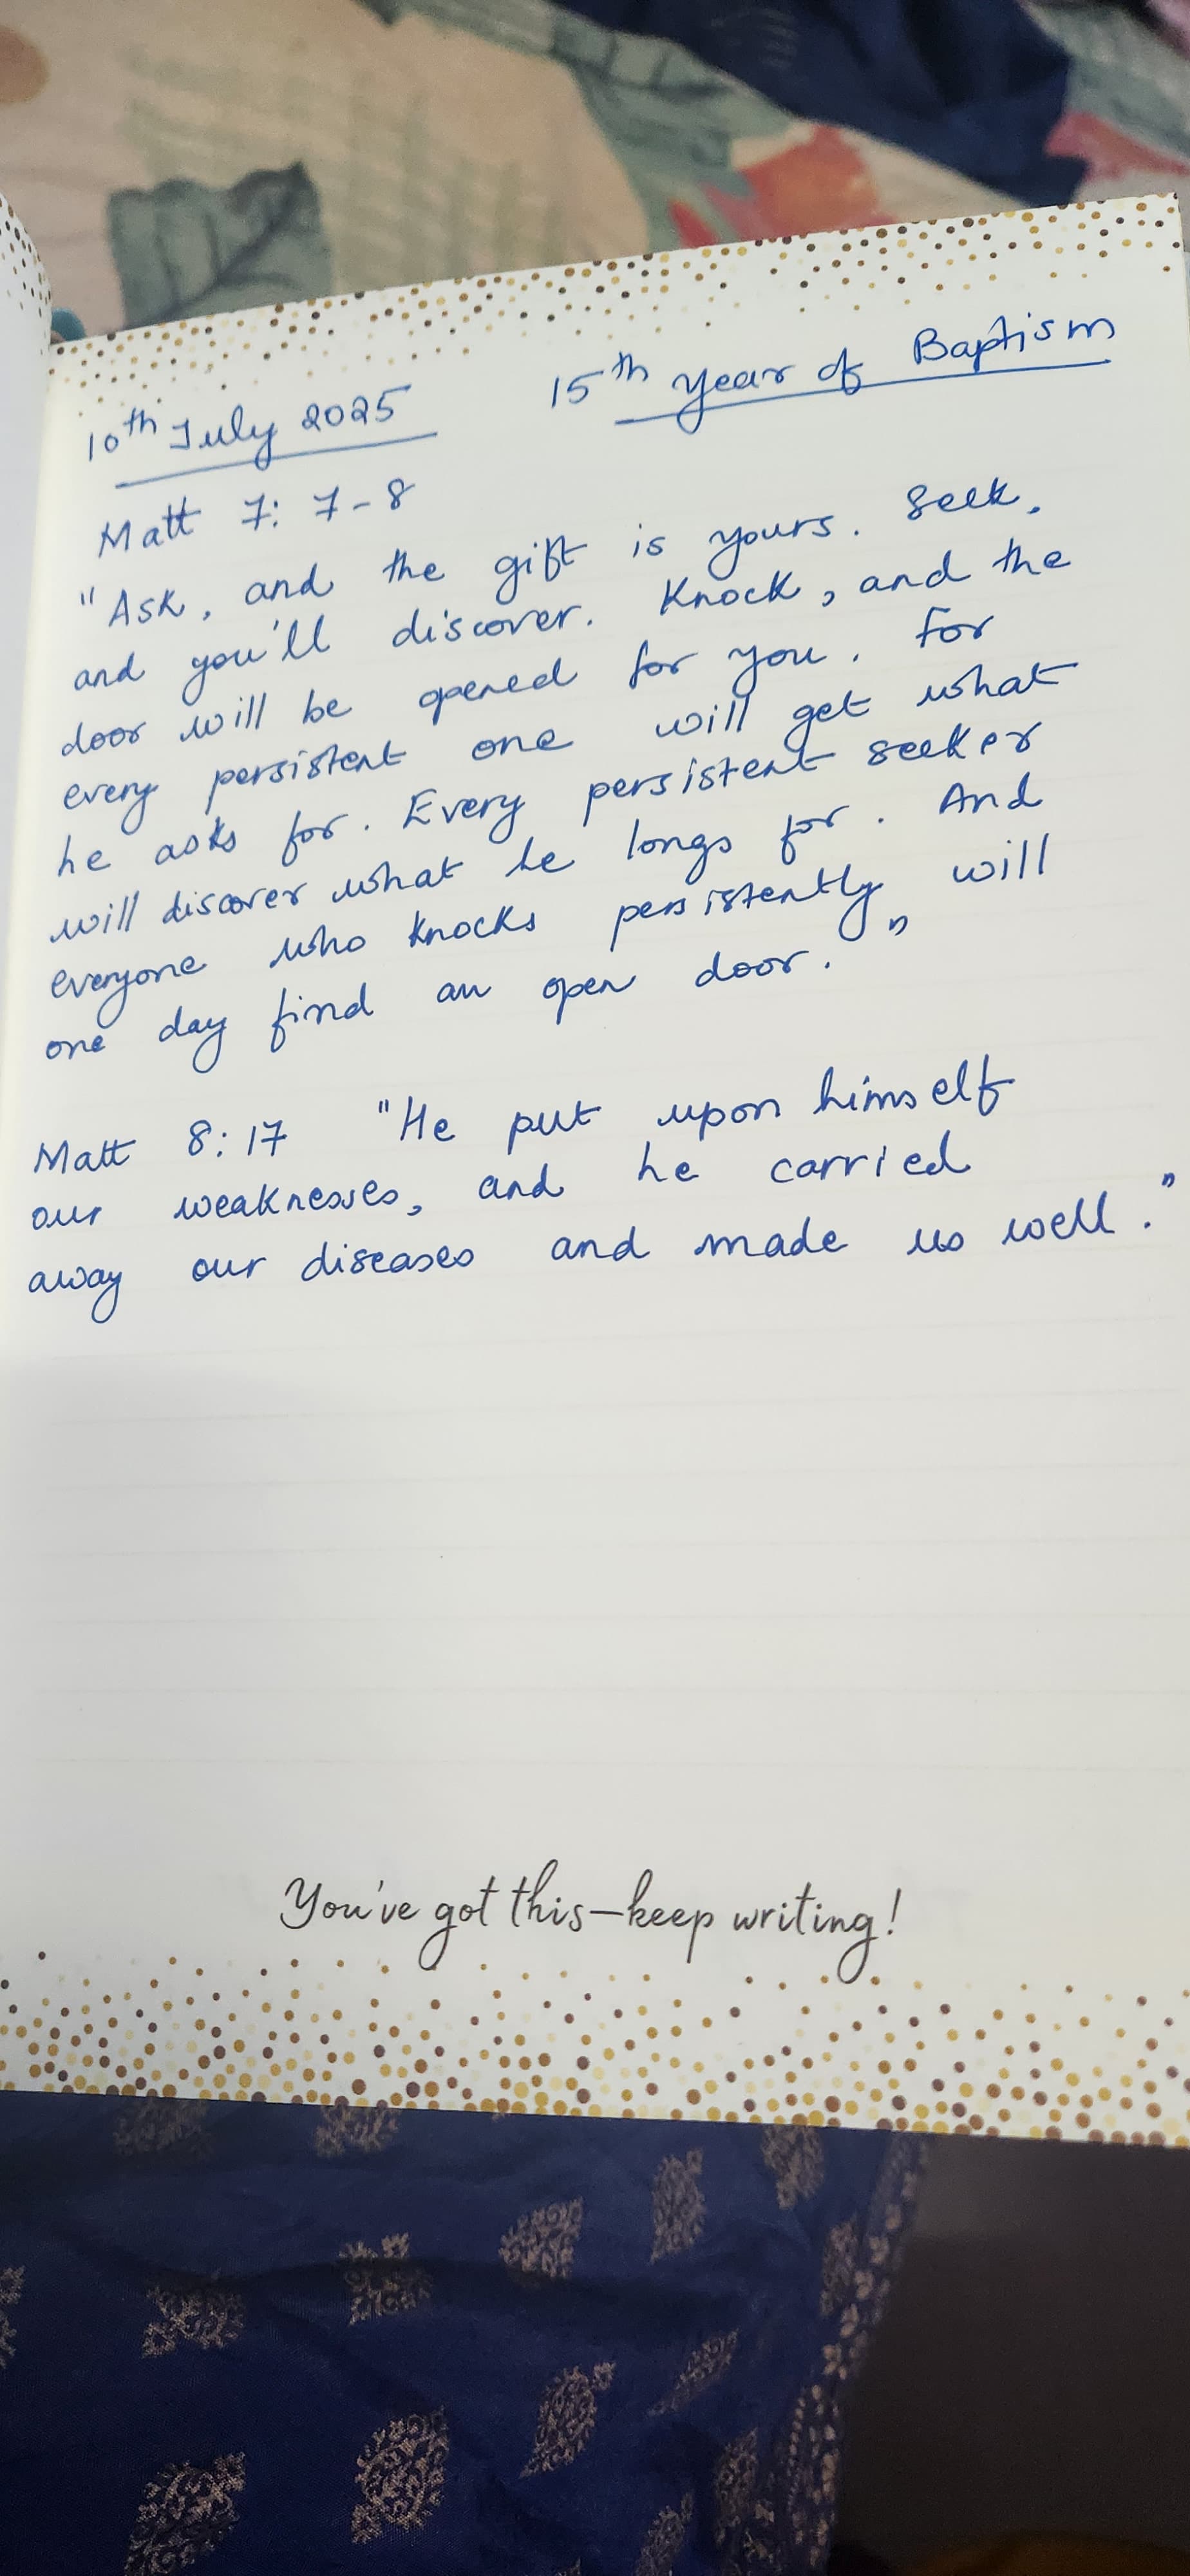 10th July 2025 15th year of Baptism
Matt 7: 7-8
"Ask, and the gift is yours. Seek,
and you'll discover. Knock, and the
door will be opened for you. For
every persistent one will get what
he asks for. Every persistent seeker
will discover what he longs for. And
everyone who knocks persistently will
one day find an open door."
Matt 8:17 "He put upon himself
our weaknesses, and he carried
away our diseases and made us well."
You've got this—keep writing!